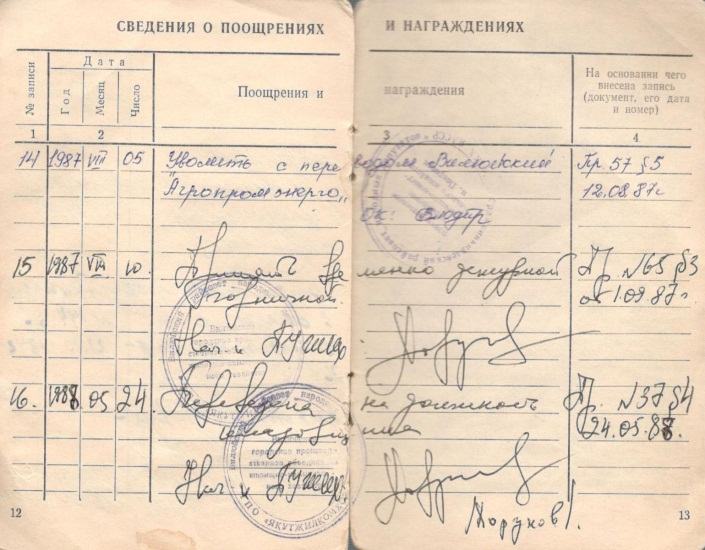 СВЕДЕНИЯ О ПООЩРЕНИЯХ И НАГРАЖДЕНИЯХ
№ записи
Дата
Год
Месяц
Число
Поощрения и награждения
На основании чего
внесена запись
(документ, его дата
и номер)
1 2 3 4
14 1987 VIII 05 Уволить с переводом Вилюйский Пр. 57 §5
"Агропромэнерго" 12.08.87г
ОК:
15 1987 VIII 10. Принять временно дежурной Пр. №65 §3
горничной. от 1.09.87г.
Нач
16. 1988 05 24. Переведена на должность Пр. №37 §4
кладовщика 24.05.88.
Нач
ТПО "ЯКУТЖИЛКОМ
12
13